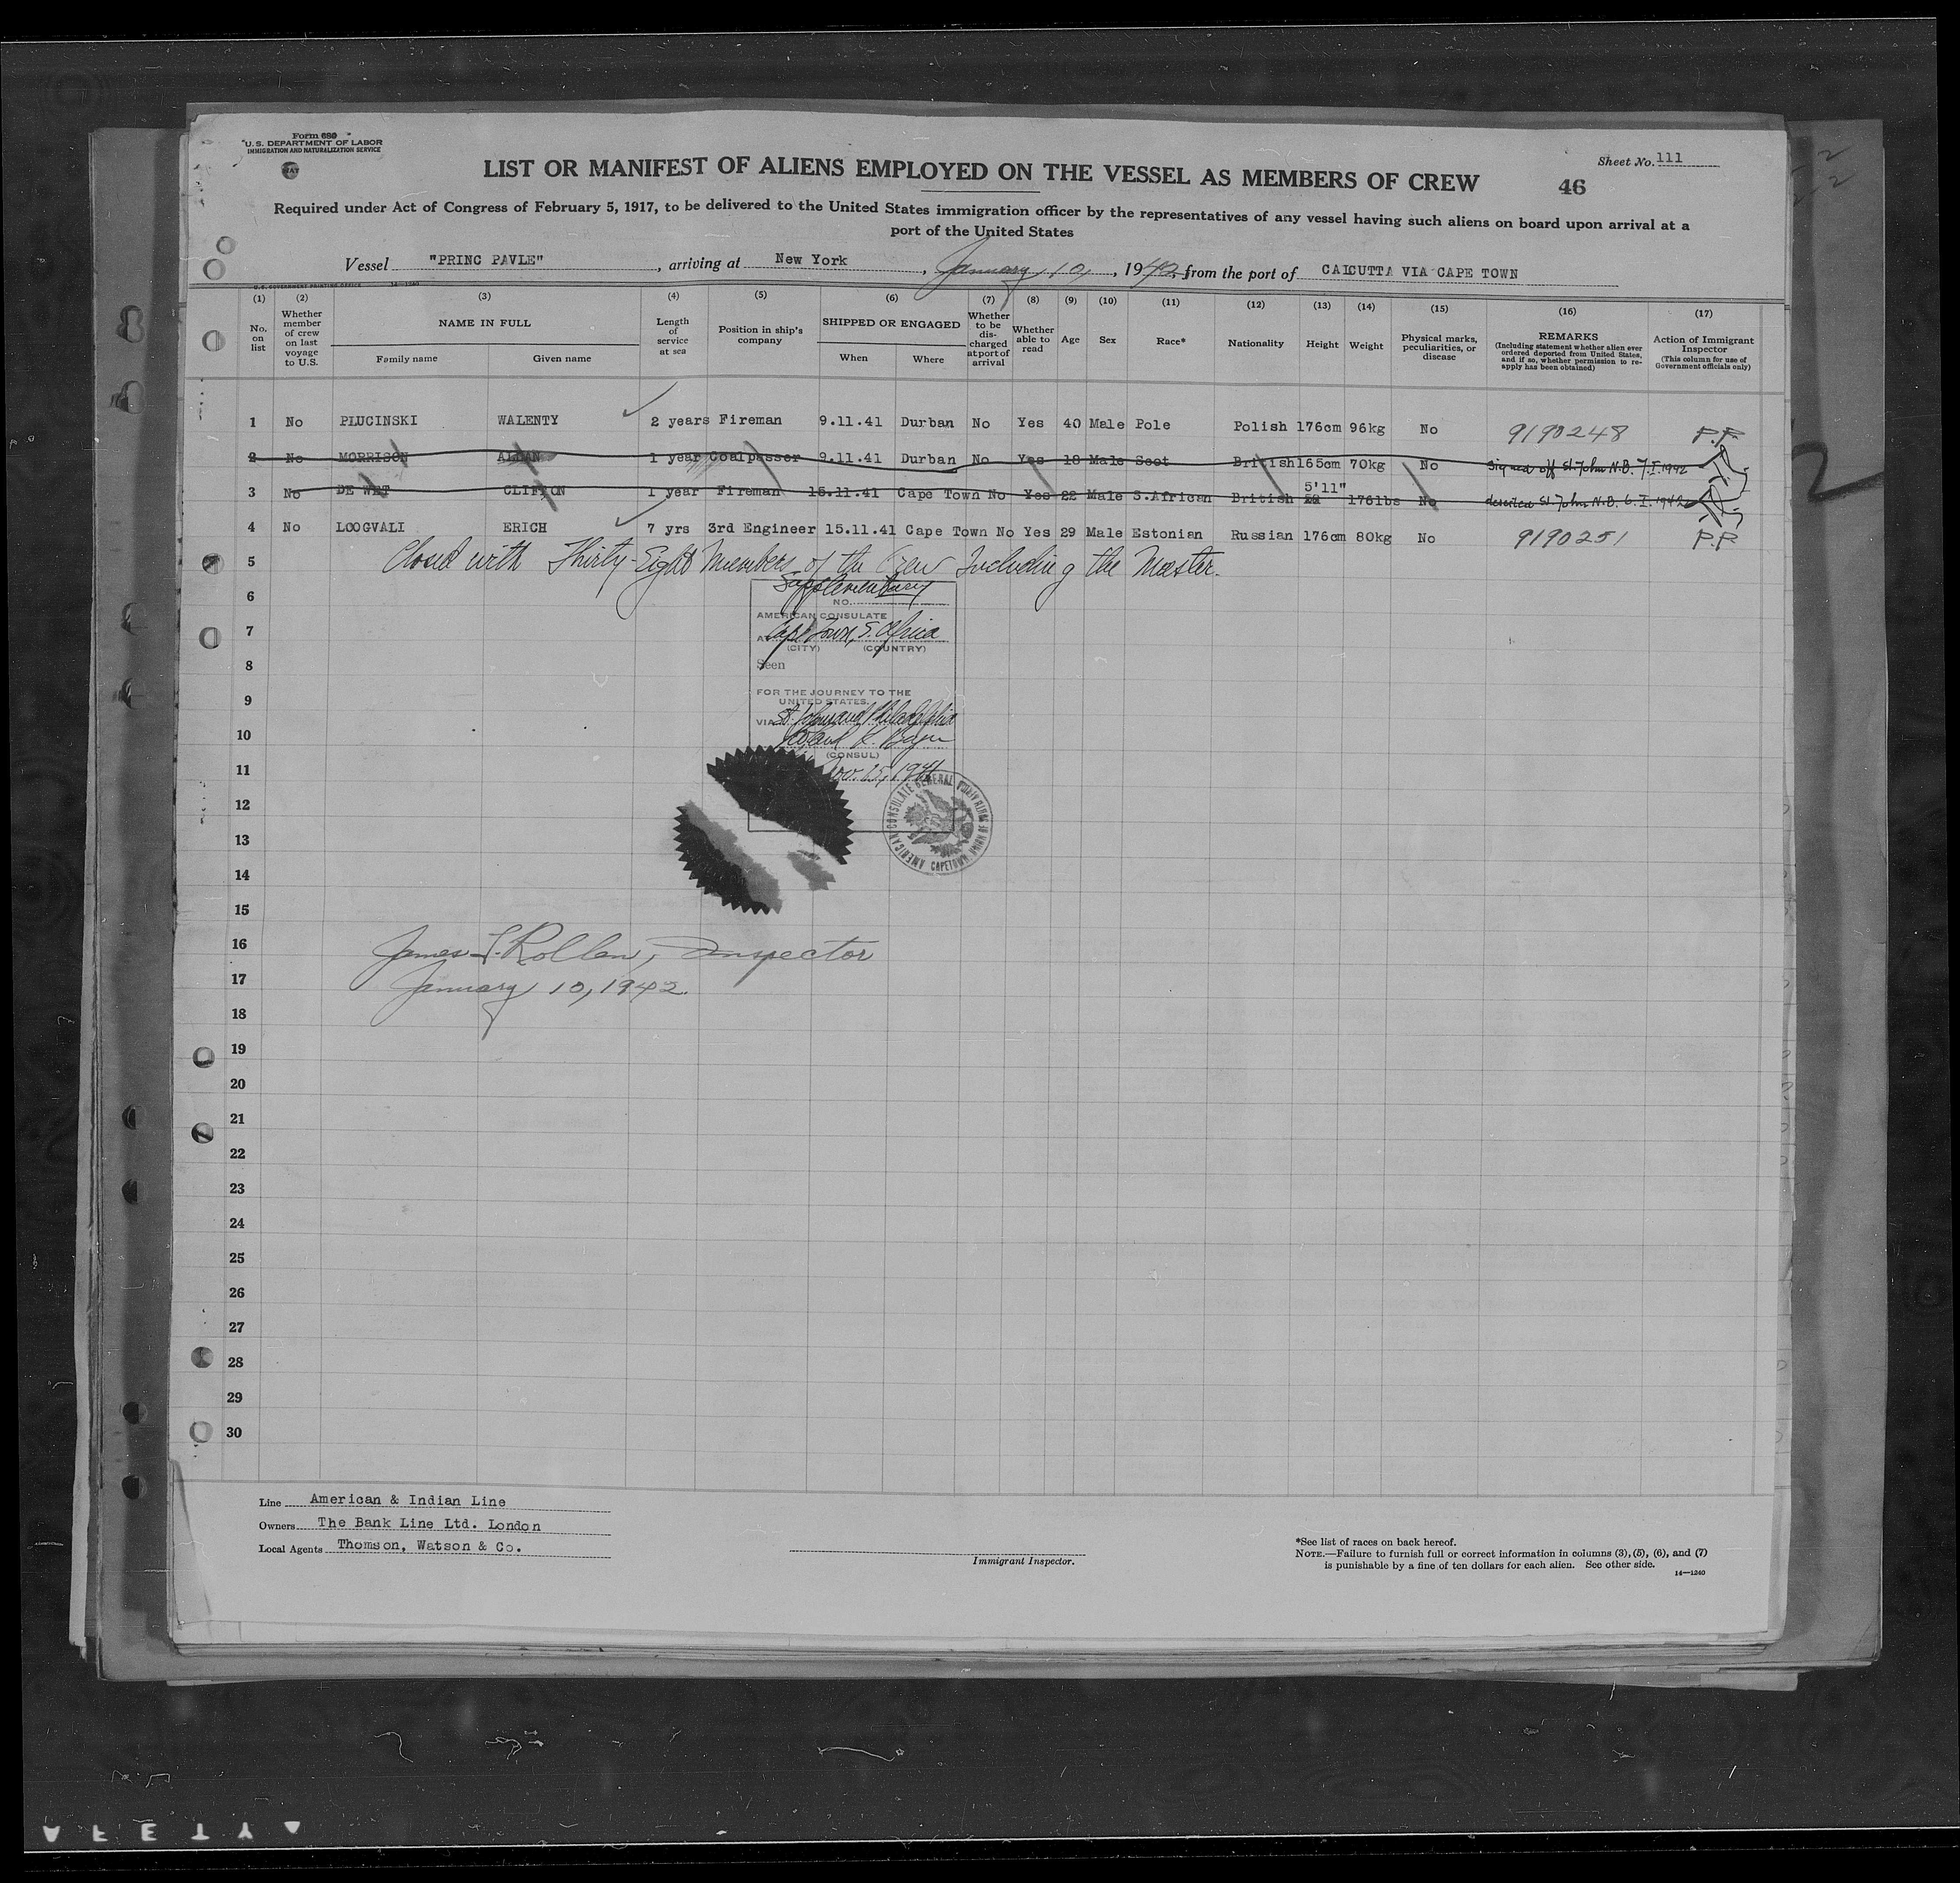 Form 680
U. S. DEPARTMENT OF LABOR
IMMIGRATION AND NATURALIZATION SERVICE
LIST OR MANIFEST OF ALIENS EMPLOYED ON THE VESSEL AS MEMBERS OF CREW
Sheet No. 111
46
Required under Act of Congress of February 5, 1917, to be delivered to the United States immigration officer by the representatives of any vessel having such aliens on board upon arrival at a
port of the United States
Vessel "PRINC PAVLE", arriving at New York, January 10, 1942, from the port of CALCUTTA VIA CAPE TOWN
U.S. GOVERNMENT PRINTING OFFICE 14—1240
(1) (2) (3) (4) (5) (6) (7) (8) (9) (10) (11) (12) (13) (14) (15) (16) (17)
No. on list
Whether member of crew on last voyage to U.S.
NAME IN FULL
Family name Given name
Length of service at sea
Position in ship's company
SHIPPED OR ENGAGED
When Where
Whether to be discharged at port of arrival
Whether able to read
Age
Sex
Race*
Nationality
Height
Weight
Physical marks, peculiarities, or disease
REMARKS
(Including statement whether alien ever ordered deported from United States, and if so, whether permission to reapply has been obtained)
Action of Immigrant Inspector
(This column for use of Government officials only)
1 No PLUCINSKI WALENTY 2 years Fireman 9.11.41 Durban No Yes 40 Male Pole Polish 176cm 96kg No 9190248 P.P.
2 No MORRISON ALLAN 1 year Coalpasser 9.11.41 Durban No Yes 18 Male Scot British 165cm 70kg No Signed off St. John N.B. 7.I.1942
3 No DE WET CLIFTON 1 year Fireman 15.11.41 Cape Town No Yes 22 Male S.African British 5'11" 176lbs No deserted St. John N.B. 6.I.1942
4 No LOOGVALI ERICH 7 yrs 3rd Engineer 15.11.41 Cape Town No Yes 29 Male Estonian Russian 176cm 80kg No 9190251 P.P.
5 Closed with Thirty-Eight Members of the Crew Including the Master.
6
Supplementary
NO.
7
AMERICAN CONSULATE
AT Cape Town, S. Africa
(CITY) (COUNTRY)
8
Seen
9
FOR THE JOURNEY TO THE
UNITED STATES.
VIA St. John and Philadelphia
10
(CONSUL)
11
Nov. 15, 1941
AMERICAN CONSULATE GENERAL CAPETOWN, UNION OF
12
13
14
15
16 James F. Rollan, Inspector
17 January 10, 1942.
18
19
20
21
22
23
24
25
26
27
28
29
30
Line American & Indian Line
Owners The Bank Line Ltd. London
Local Agents Thomson, Watson & Co.
Immigrant Inspector.
*See list of races on back hereof.
NOTE.—Failure to furnish full or correct information in columns (3), (5), (6), and (7)
is punishable by a fine of ten dollars for each alien. See other side.
14—1240